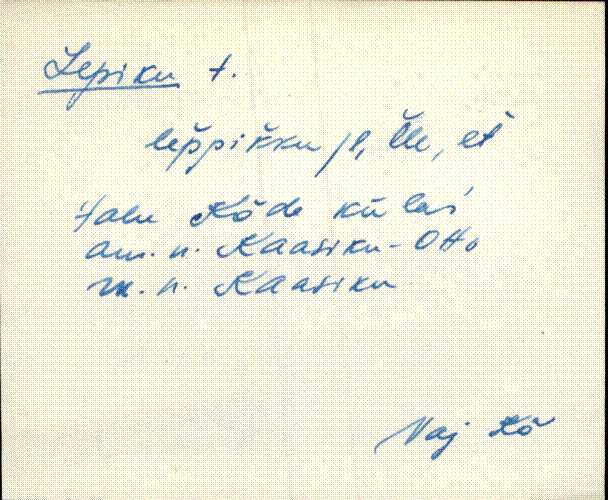 Lepiku t.
lep̌piǩku /l, l̆le, et̆
Talu Kõde külas
am. n. Kaasiku-Otto
m. n. Kaasiku
Vaj Kõ